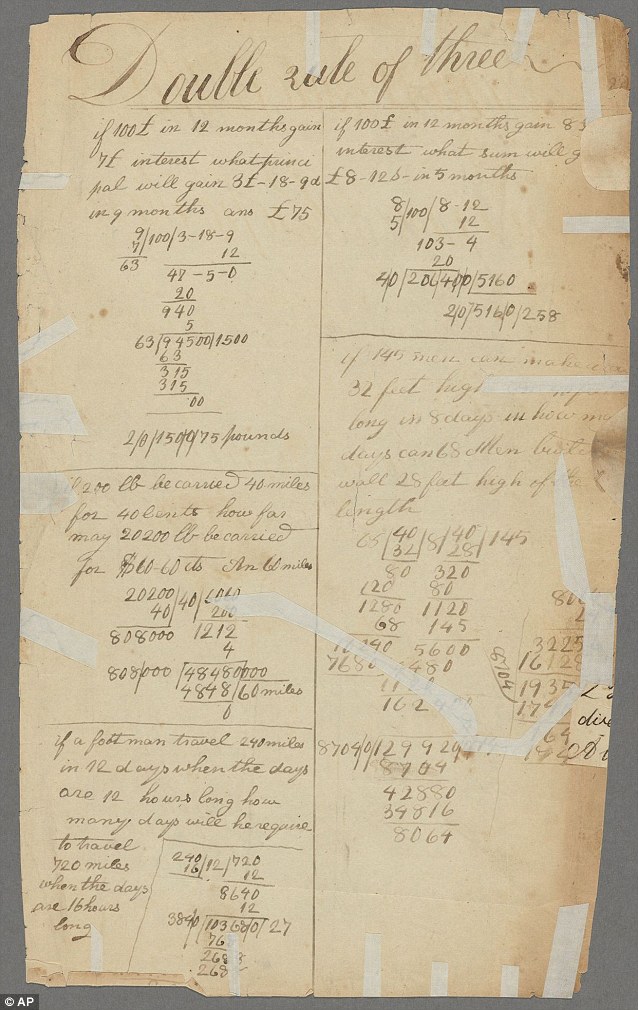 Double rule of three
if 100£ in 12 months gain
7£ interest what princi
pal will gain 3£-18-9d
in 9 months ans £75
9/100/3-18-9
7 12
63 47-5-0
20
940
5
63/94500/1500
63
315
315
00
2/0/150/0/75 pounds
if 100£ in 12 months gain 8
interest what sum will g
£8-12s-in 5 months
8/100/8-12
5 12
103-4
20
40/206400/5160
2/0/516/0/258
200 lb be carried 40 miles
for 40 Cents how far
may 20200 lb be carried
for $60-60 cts An 60 miles
20200/40/6060
40 200
808000 1212
4
808/000/48480000
4848/60 miles
0
if 145 men can make
32 feet high
long in 8 days in how m
days can 68 Men
wall 28 feet high
length
40/8/40/145
32 28
80 320
120 80
1280 1120
68 145
5600
7680 4480
8704
42880
34816
8064
8704
3225
16128
1935
if a foot man travel 240 miles
in 12 days when the days
are 12 hours long how
many days will he require
to travel
720 miles
when the days
are 16 hours
long
240/12/720
16 12
8640
12
3840/103680/27
76
268
268
© AP